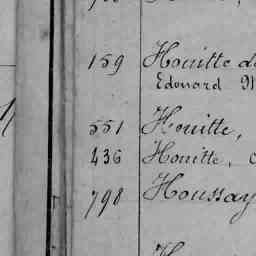 159 Houitte de
Edouard
551 Houitte,
436 Houitte,
798 Houssay